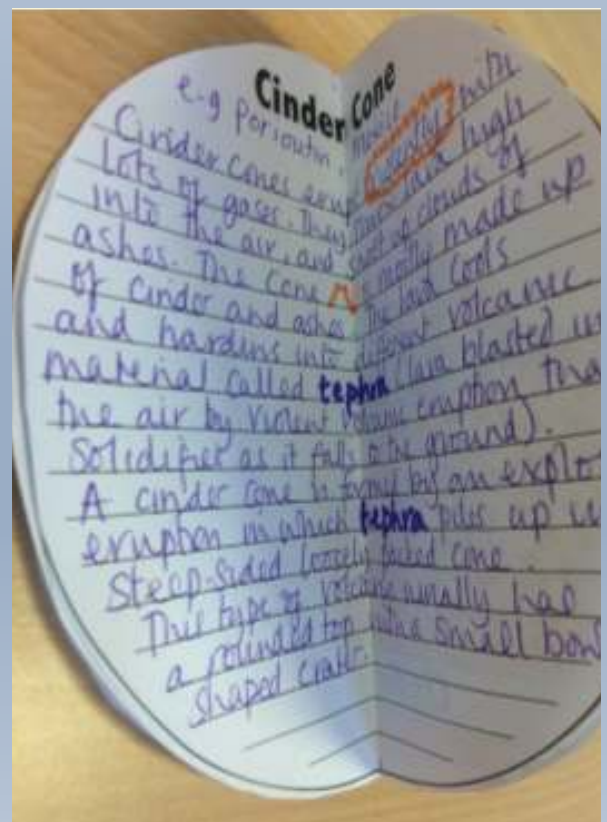 Cinder Cone
e-g porioutin,
Cinder cones erup violently with
lots of gases. They throw lava high
into the air, and clouds of
ashes. The cone is mostly made up
of cinder and ashes. The lava cools
and hardins into different volcanic
material called tephra (lava blasted in
the air by violent volcanic eruption tha
solidifies as it falls to the ground).
A cinder cone is formed by an explo
eruption in which tephra piles up in
steep-sided loosely packed cone.
This type of volcano usually has
a rounded top with a small bow
shaped crater.